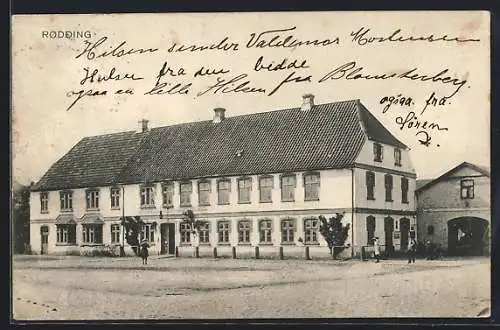 RØDDING.
Hilsen sender Valdemar Mortensen
Hilsen fra den bedde
ogsaa en lille Hilsen fra Blomsterberg
ogsaa fra
Sören